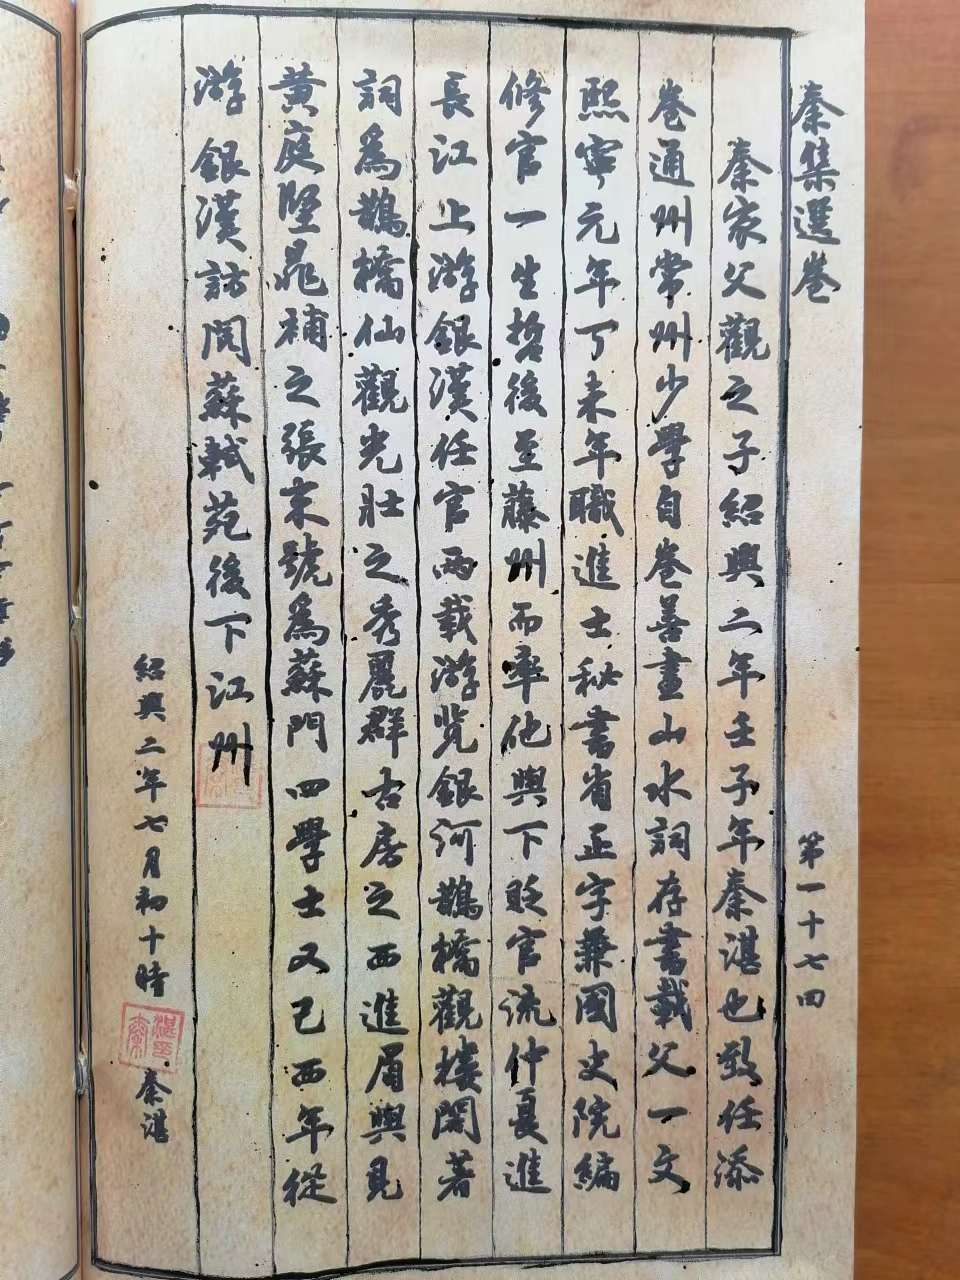 秦集選卷
第一十七回
秦家父觀之子紹興二年壬子年秦湛也致任添
卷通州常州少學自卷善畫山水詞存書載父一文
熙寧元年丁未年職進士秘書省正字兼國史院編
修官一生哲後至藤州而率他與下貶官流仲憂進
長江上游銀漢任官兩載游览銀河鵲橋觀樓閣著
詞為鵲橋仙觀光壯之秀麗群古居之西進眉與見
黃庭堅晁補之張耒號為蘇門四學士又己酉年從
游銀漢訪問蘇軾苑後下江州
紹興二年七月初十時
秦湛